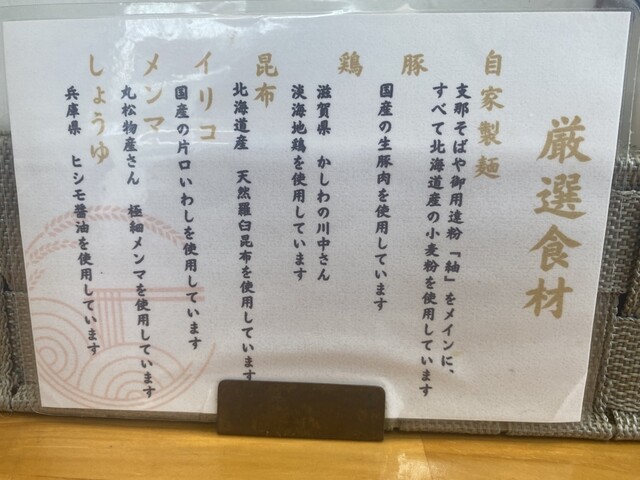 厳選食材
自家製麺
支那そばや御用達粉「紬」をメインに、
すべて北海道産の小麦粉を使用しています
豚
国産の生豚肉を使用しています
鶏
滋賀県　かしわの川中さん
淡海地鶏を使用しています
昆布
北海道産　天然羅臼昆布を使用しています
イリコ
国産の片口いわしを使用しています
メンマ
丸松物産さん　極細メンマを使用しています
しょうゆ
兵庫県　ヒシモ醤油を使用しています